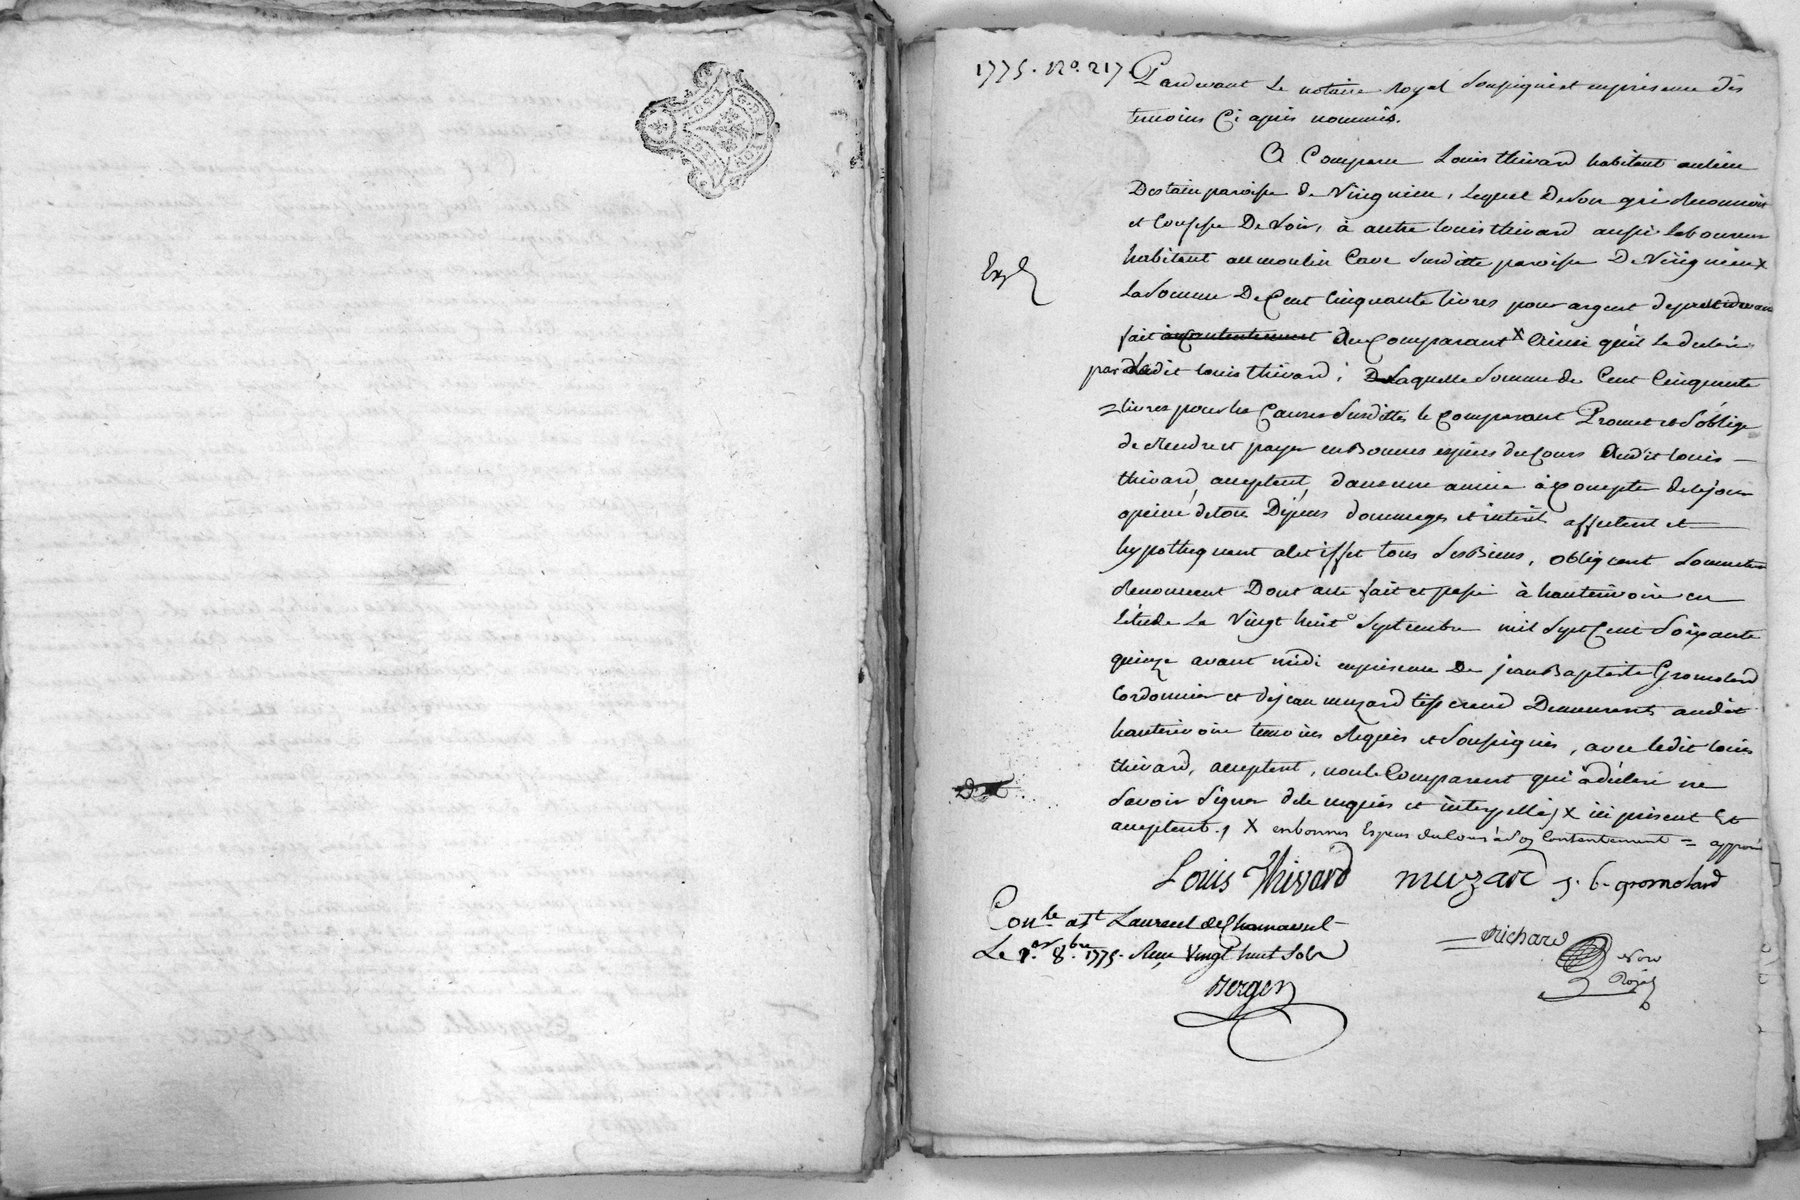 1775. No. 217 Pardevant Le notaire Royal Soussigné et en presence des
temoins Ci apres nommés.
A Comparu Louis thivard habitant au lieu
paroisse de Virignieu, Lequel De Son gré Reconnoit
et Confesse Devoir, à autre louis thivard aussi Laboureur
habitant au moulin Cave Susditte paroisse De Virignieu x
Exp
La Somme De Cent Cinquante livres pour argent de prest
fait a contentement Au Comparant x Ainsi qu'il Le declare
par ledit louis thivard; Laquelle Somme de Cent Cinquante
= livres pour les Causes Susdittes le Comparant Promet et S'oblige
de Rendre et payer en Bonnes especes du Cours Audit louis —
thivard, acceptent, dans une année à Compter de le jour
a peine de tous Dépens dommages et interest affectent et —
hypothequent a let effet tous Ses Biens, obligeant Soumettent
Renoncent Dont acte fait et passé à hauterivoire en
L'étude Le Vingt huit Septembre mil Sept Cent Soixante
quinze avant midi en presence De jean Baptiste Gromolard
Cordonnier et de jean muzard tisserand Demeurents audit
hauterivoire temoins Requis et Soussignés, avec ledit louis
thivard, acceptent, non le Comparent qui a déclaré ne
Savoir Signer de le requis et interpellé, x ici present Et
acceptent., x en bonnes Especes du Cours à Son Contentement = approuvé
Louis Thivard muzard j. b. gromolard
Conlé a St Laurent de Chamousset
Le 1.er 8.bre 1775. Reçu Vingt huit Sols
Richard
Nore
Royal
Berger